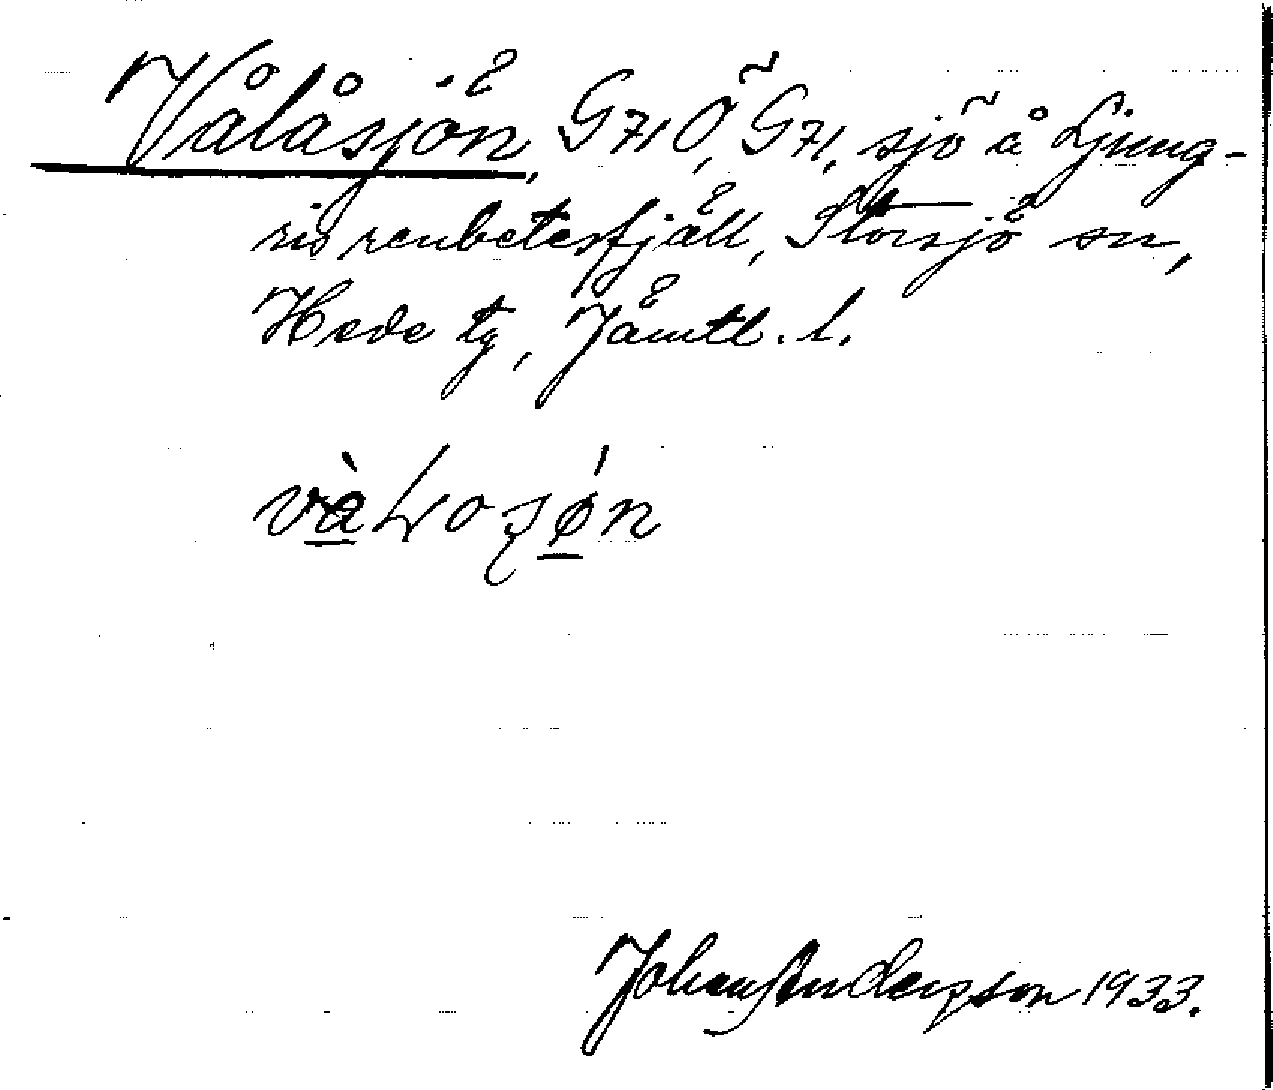 Vålåsjön, G71Ö, G71, sjö å Ljung-
ris renbetesfjäll, Storsjö sn,
Hede tg, Jämtl. l.
Johan Andersson 1933.